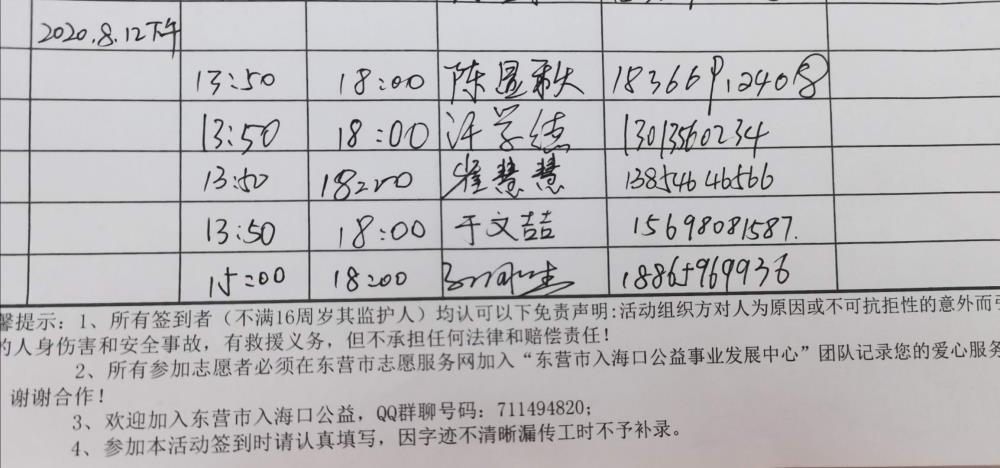 2020.8.12下午
13:50 18:00 陈显秋
13:50 18:00 汗学德 13013560234
13:50 18:00 崔慧慧 13854646566
13:50 18:00 于文喆 15698081587.
15:00 18:00 18865969936
馨提示：1、所有签到者（不满16周岁其监护人）均认可以下免责声明:活动组织方对人为原因或不可抗拒性的意外而引
的人身伤害和安全事故，有救援义务，但不承担任何法律和赔偿责任！
2、所有参加志愿者必须在东营市志愿服务网加入“东营市入海口公益事业发展中心”团队记录您的爱心服务
谢谢合作！
3、欢迎加入东营市入海口公益，QQ群聊号码：711494820；
4、参加本活动签到时请认真填写，因字迹不清晰漏传工时不予补录。